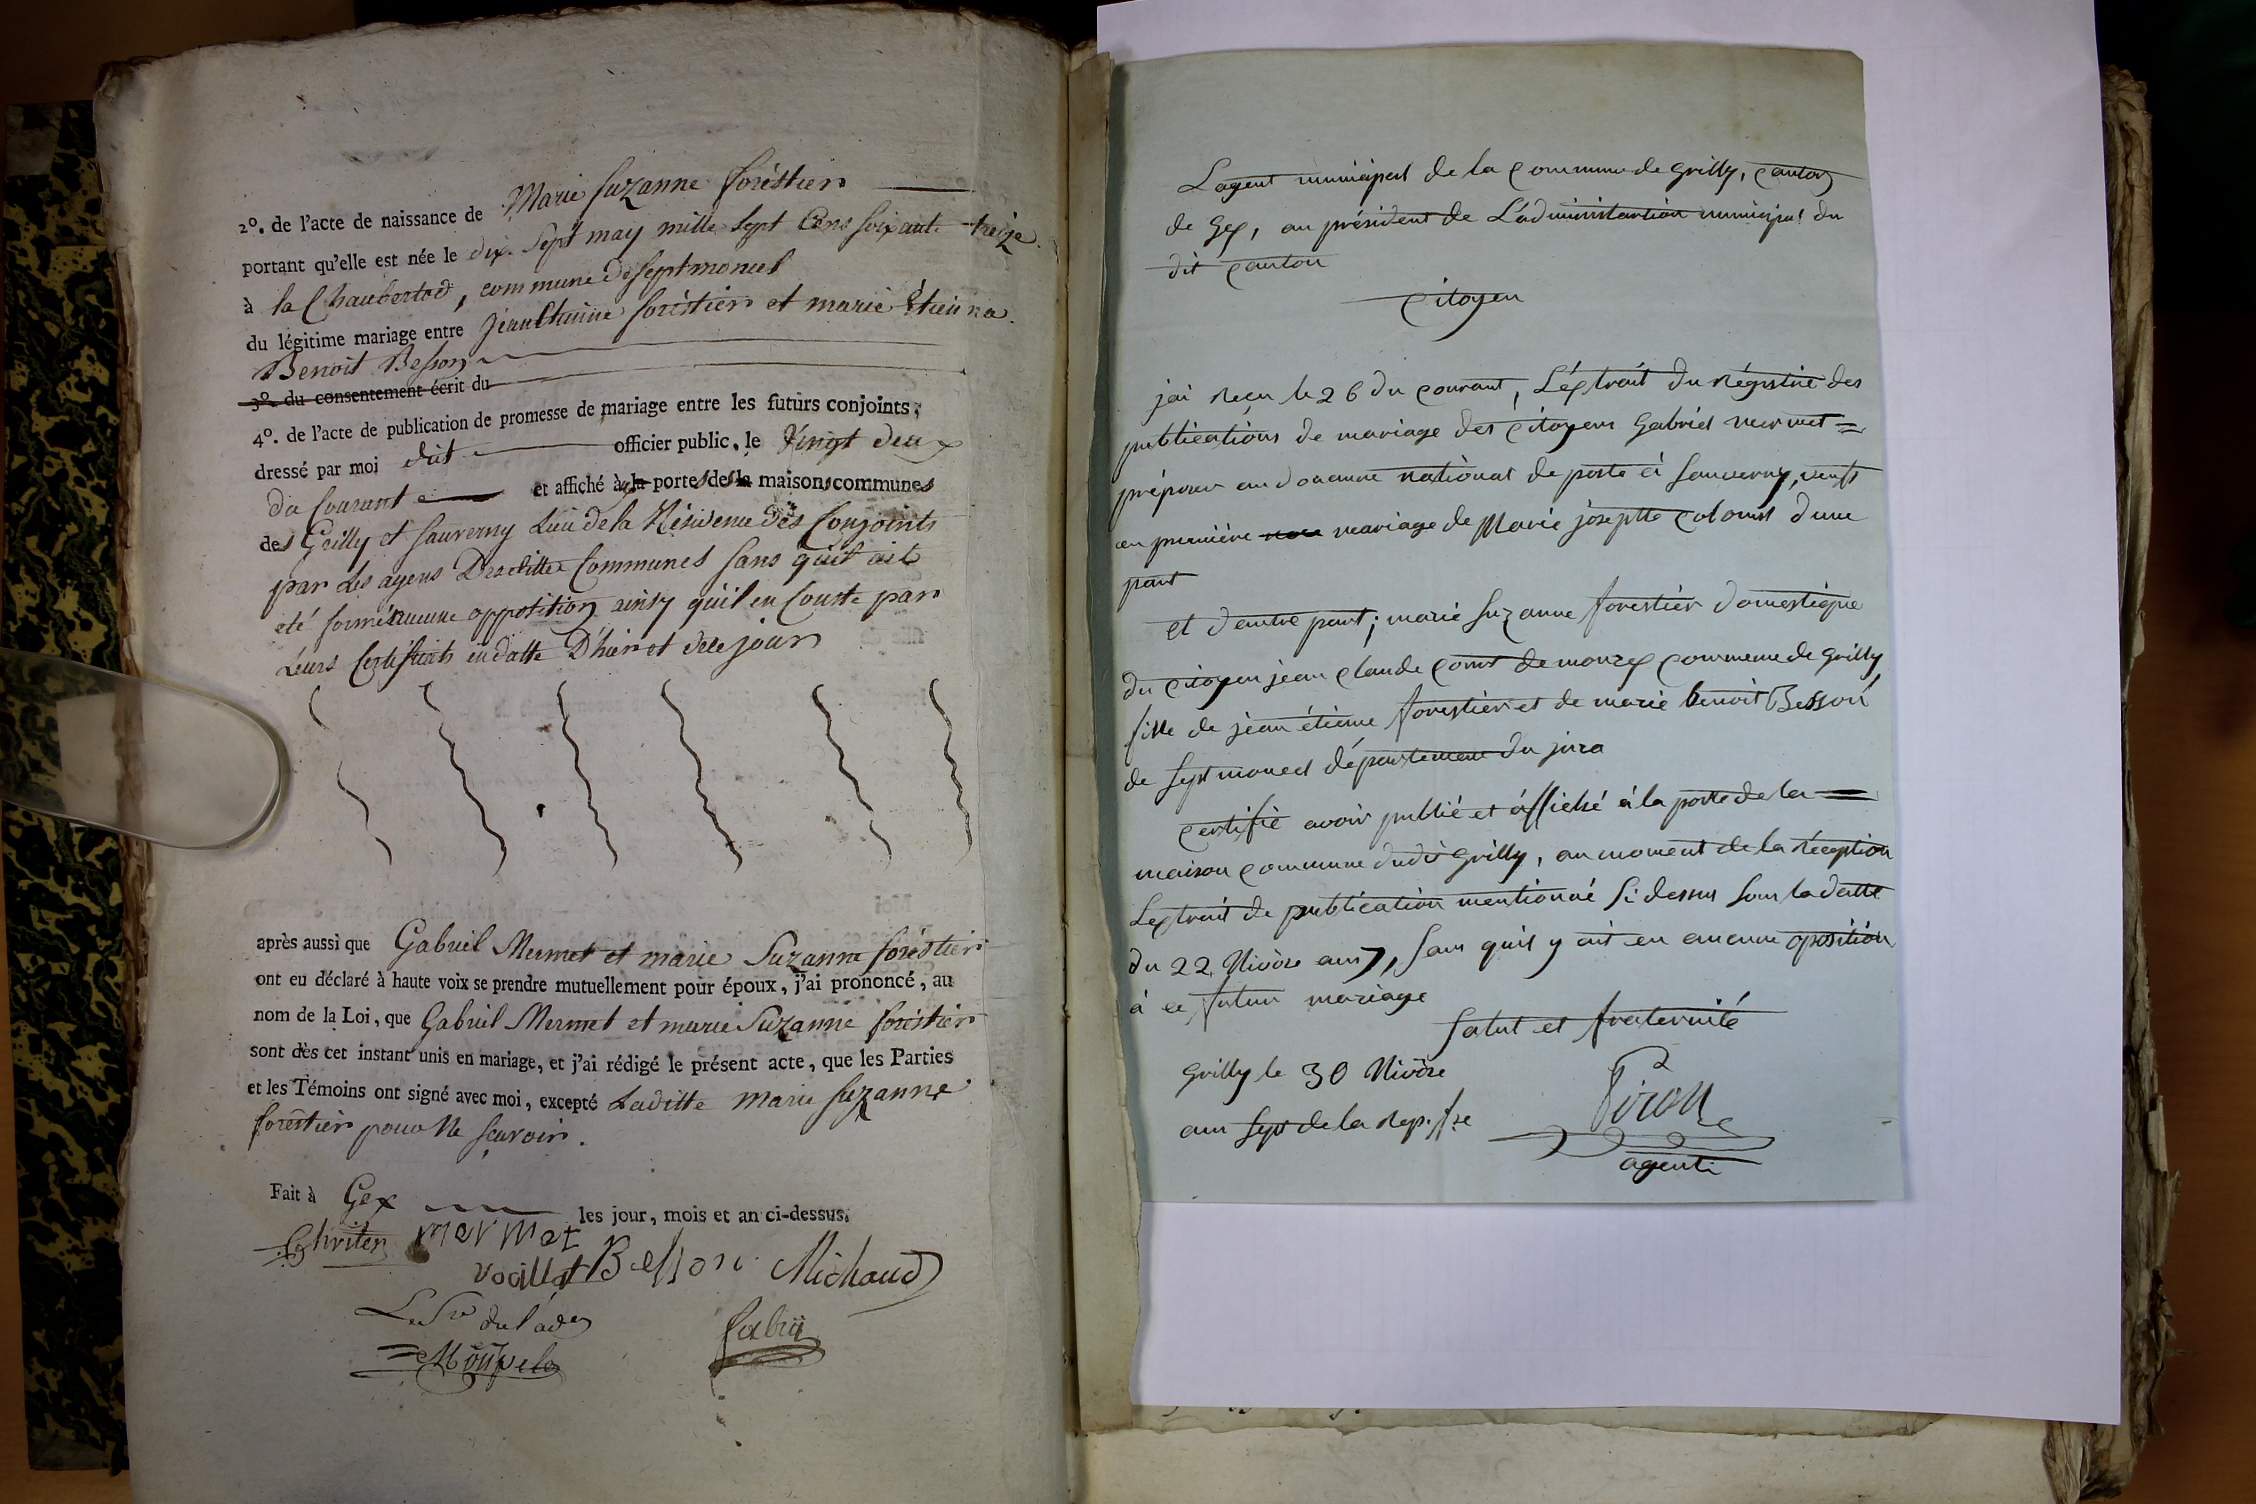 2º. de l'acte de naissance de Marie Suzanne foréstier
portant qu'elle est née le dix sept may mille sept Cens soixante treize.
à la Chaubertod, commune de septmoncel
du légitime mariage entre Jean Etienne foréstier et marie Etienna
Benoit Besson
3º. du consentement écrit du
4º. de l'acte de publication de promesse de mariage entre les futurs conjoints,
dressé par moi dit officier public, le Vingt deux
du Courant et affiché à la portes des la maisons communes
des Grilly et Sauverny Lieu de la Résidence Des Conjoints
par Les agens Desdittes Communes Sans quil ait
eté formé aucune opposition ainsy quil en Conste par
Leurs Certificats en datte D'hier et de ce jour
après aussi que Gabriel Mermet et marie Suzanne foréstier
ont eu déclaré à haute voix se prendre mutuellement pour époux, j'ai prononcé, au
nom de la Loi, que Gabriel Mermet et marie Suzanne foréstier
sont dès cet instant unis en mariage, et j'ai rédigé le présent acte, que les Parties
et les Témoins ont signé avec moi, excepté Laditte marie Suzanne
forestier pour Ne scavoir.
Fait à Gex les jour, mois et an ci-dessus.
mermet
Besson Michaud
fabry
Lagent municipal de la Commune de Grilly, Canton
de Gex, au président de L'administration municipal du
dit Canton
Citoyen
jai reçu le 26 du Courant, L'éxtrait du régistre des
publications de mariage des Citoyens Gabriel mermet =
préposer au douanne national de poste à Sauverny, veuf
en première mariage de Marie josephte Colomb d'une
part
et d'autre part; marie Suzanne forestier domestique
du Citoyen jean Claude de mourex Commune de Grilly
fille de jean étienne forestier et de marie benoit Besson
de Septmoncel département du jura
Certifie avoir publié et affiché à la porte de la =
maison Commune dudit Grilly, au moment de la réception
Lextrait de publication mentionné Si dessus Sous la datte
du 22 Nivôse an 7, Sans quil y ait eu aucune oposition
à ce futur mariage
Salut et fraternité
Grilly le 30 Nivôse
ann Sept de la Rep. fse
Piron
agent